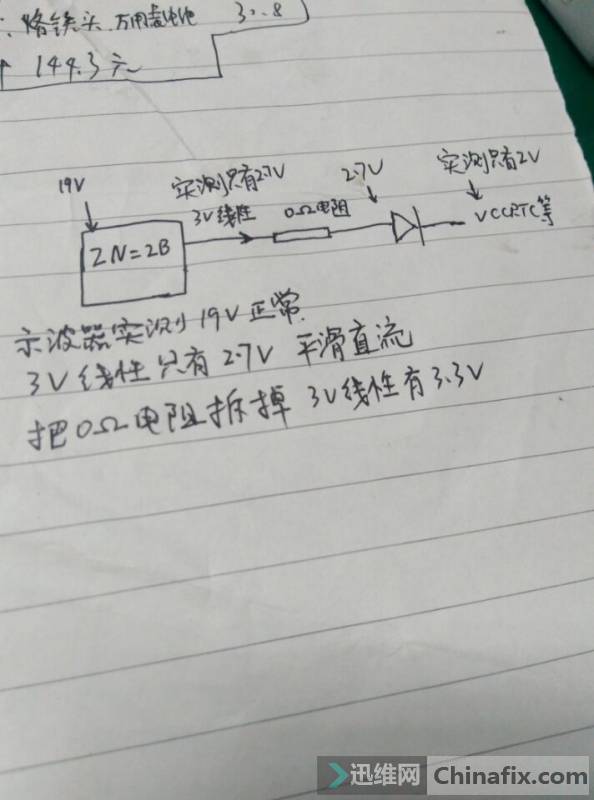 烙铁头 万用表电池 30.8
144.3元
19V
实测只有2.7V
3V线性
0Ω电阻
2.7V
实测只有2V
VCCRTC等
ZN=2B
示波器实测 19V 正常
3V线性只有 2.7V 平滑直流
把0Ω电阻拆掉 3V线性有3.3V
迅维网 Chinafix.com